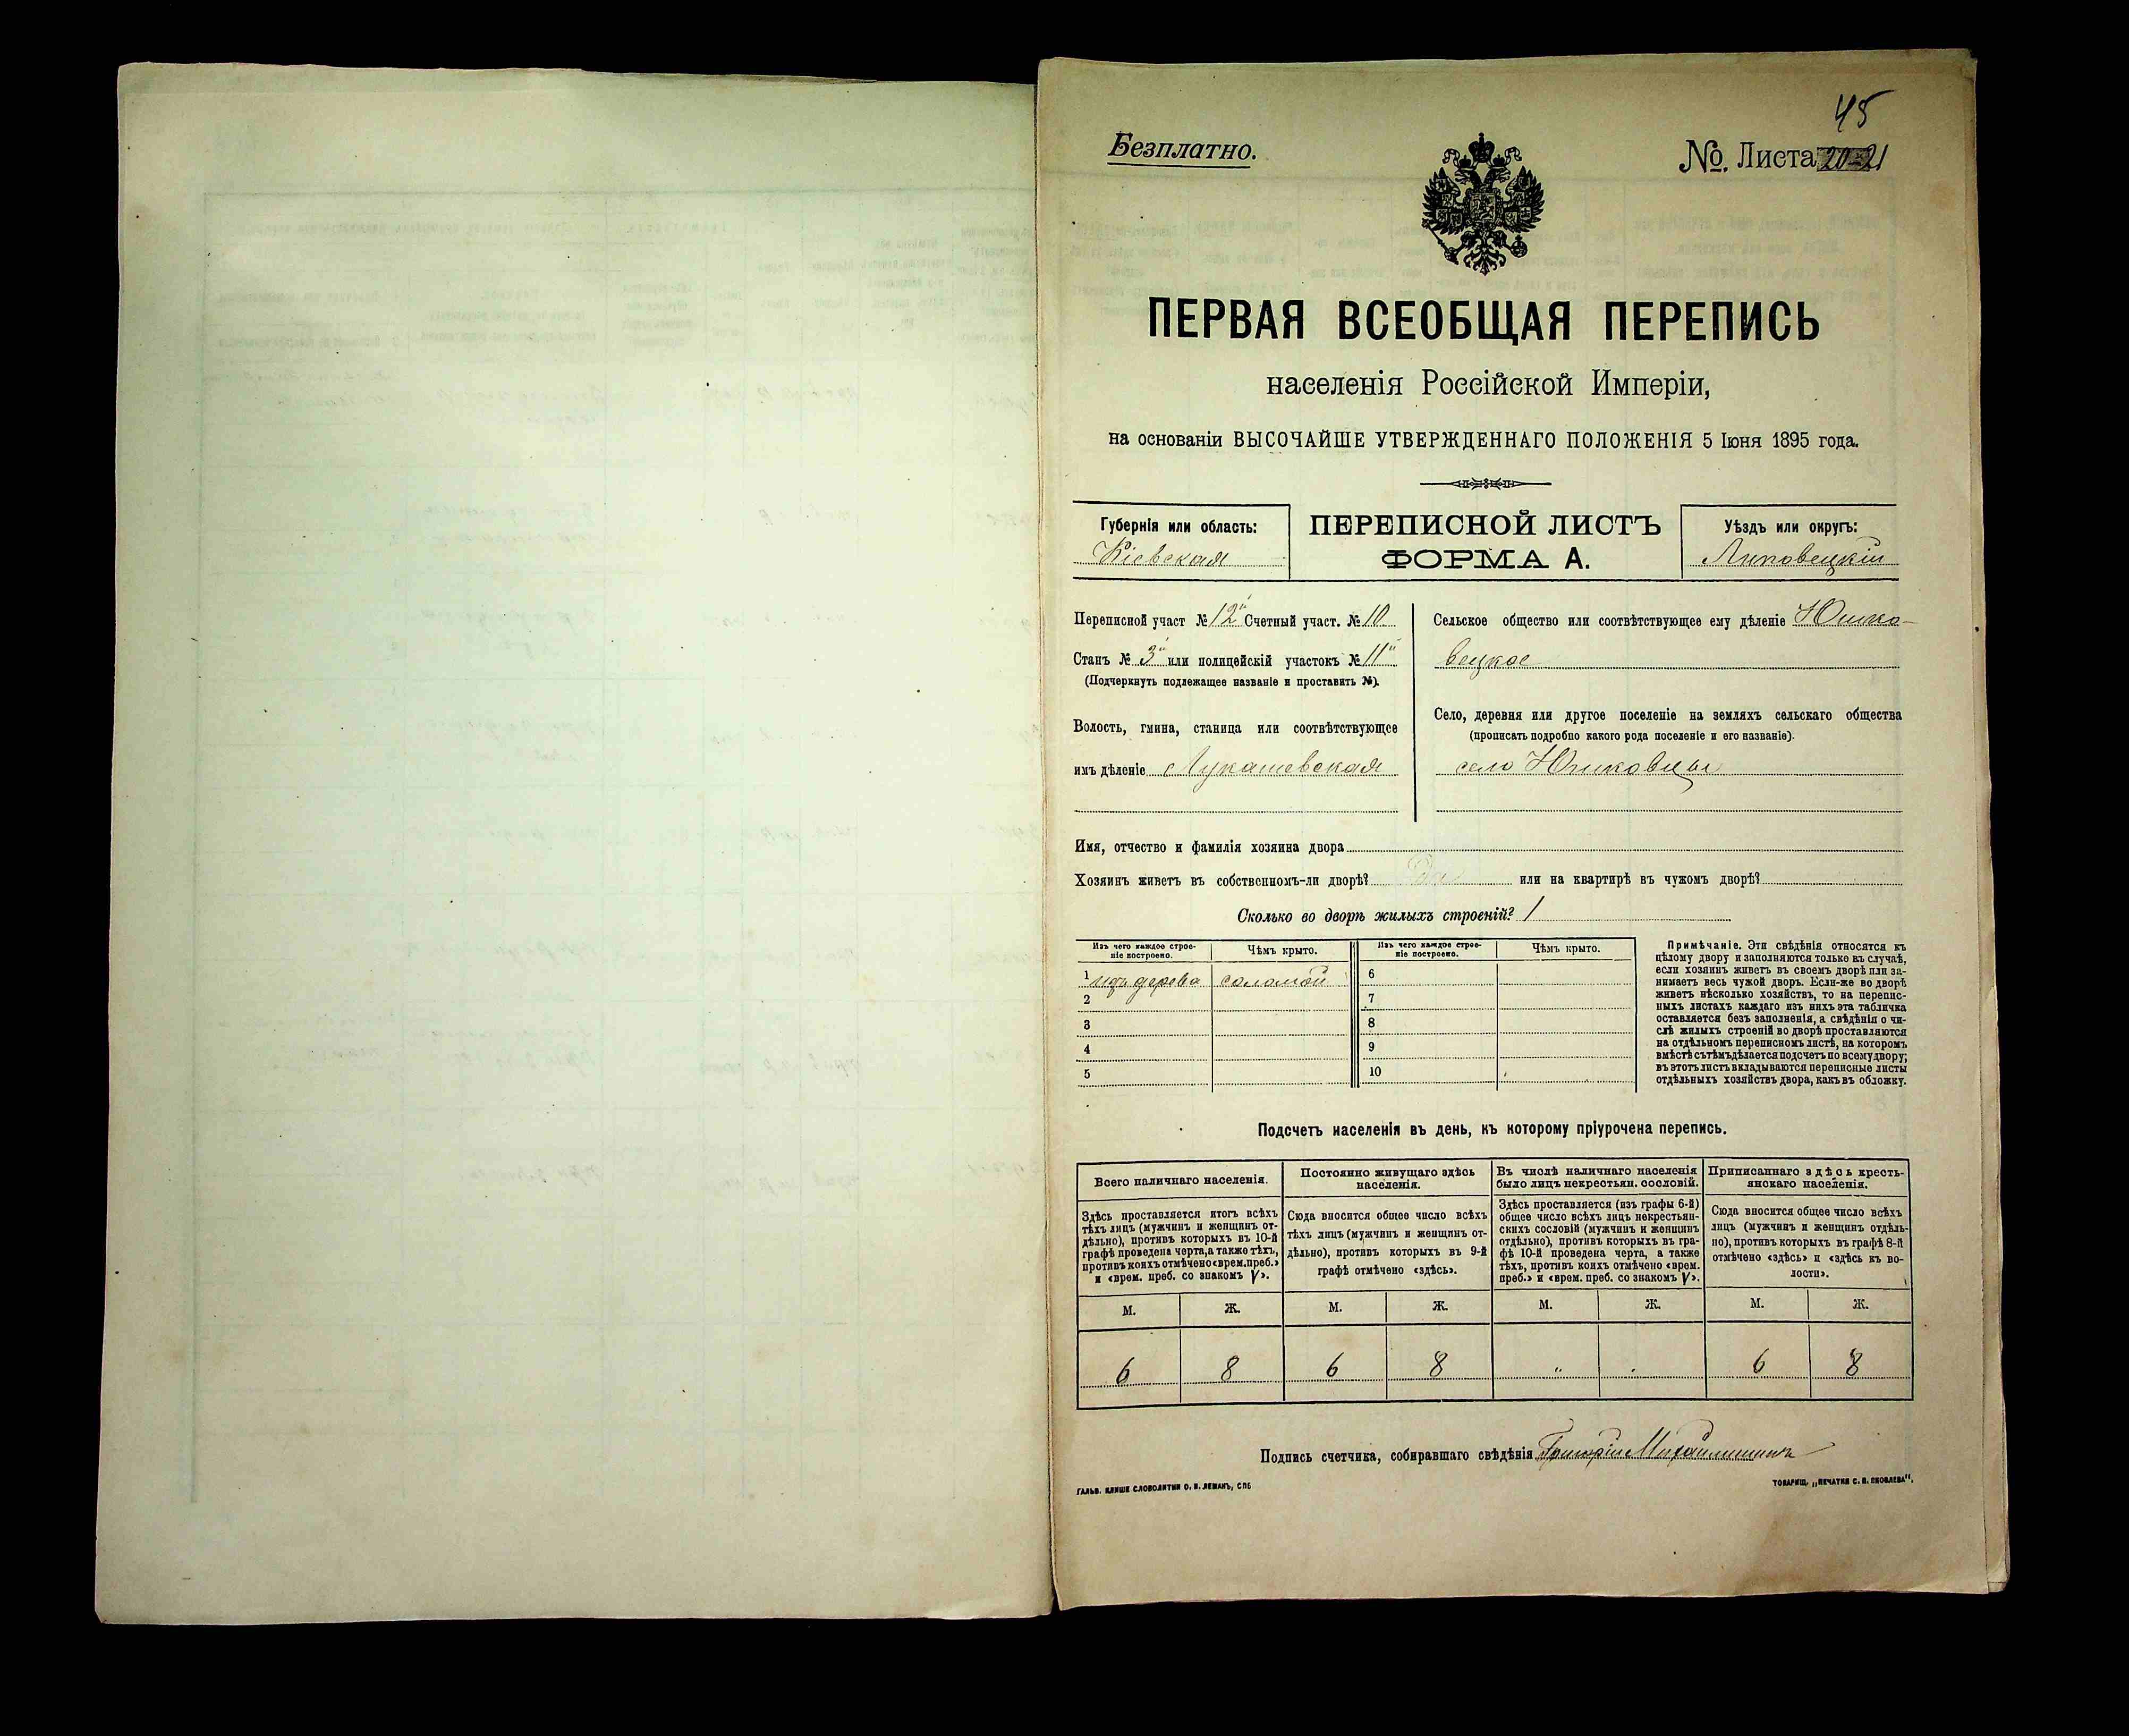 45
Безплатно.
№ Листа 20-21
ПЕРВАЯ ВСЕОБЩАЯ ПЕРЕПИСЬ
населенія Россійской Имперіи,
на основаніи ВЫСОЧАЙШЕ УТВЕРЖДЕННАГО ПОЛОЖЕНІЯ 5 Іюня 1895 года.
Губернія или область:
Кіевская
ПЕРЕПИСНОЙ ЛИСТЪ
ФОРМА А.
Уѣздъ или округъ:
Липовецкій
Переписной участ № 12й Счетный участ. № 10
Станъ № 3й или полицейскій участокъ № 11й
(Подчеркнуть подлежащее названіе и проставить №).
Волость, гмина, станица или соотвѣтствующее
имъ дѣленіе Лукашевская
Сельское общество или соотвѣтствующее ему дѣленіе Юшко-
вецкое
Село, деревня или другое поселеніе на земляхъ сельскаго общества
(прописать подробно какого рода поселеніе и его названіе).
село Юшковцы
Имя, отчество и фамилія хозяина двора
Хозяинъ живетъ въ собственномъ-ли дворѣ? Да или на квартирѣ въ чужомъ дворѣ?
Сколько во дворѣ жилыхъ строеній? 1
Изъ чего каждое строе-
ніе построено.
Чѣмъ крыто.
1 изъ дерева соломой
2
3
4
5
Изъ чего каждое строе-
ніе построено.
Чѣмъ крыто.
6
7
8
9
10
Примѣчаніе. Эти свѣдѣнія относятся къ
цѣлому двору и заполняются только въ случаѣ,
если хозяинъ живетъ въ своемъ дворѣ или за-
нимаетъ весь чужой дворъ. Если-же во дворѣ
живетъ нѣсколько хозяйствъ, то на перепис-
ныхъ листахъ каждаго изъ нихъ эта табличка
оставляется безъ заполненія, а свѣдѣнія о чи-
слѣ жилыхъ строеній во дворѣ проставляются
на отдѣльномъ переписномъ листѣ, на которомъ
вмѣстѣ съ тѣмъ дѣлается подсчетъ по всему двору;
въ этотъ листъ вкладываются переписные листы
отдѣльныхъ хозяйствъ двора, какъ въ обложку.
Подсчетъ населенія въ день, къ которому пріурочена перепись.
Всего наличнаго населенія.
Здѣсь проставляется итогъ всѣхъ
тѣхъ лицъ (мужчинъ и женщинъ от-
дѣльно), противъ которыхъ въ 10-й
графѣ проведена черта, а также тѣхъ,
противъ коихъ отмѣчено «врем. преб.»
и «врем. преб. со знакомъ V».
М. Ж.
6 8
Постоянно живущаго здѣсь
населенія.
Сюда вносится общее число всѣхъ
тѣхъ лицъ (мужчинъ и женщинъ от-
дѣльно), противъ которыхъ въ 9-й
графѣ отмѣчено «здѣсь».
М. Ж.
6 8
Въ числѣ наличнаго населенія
было лицъ некрестьян. сословій.
Здѣсь проставляется (изъ графы 6-й)
общее число всѣхъ лицъ некрестьян-
скихъ сословій (мужчинъ и женщинъ
отдѣльно), противъ которыхъ въ гра-
фѣ 10-й проведена черта, а также
тѣхъ, противъ коихъ отмѣчено «врем.
преб.» и «врем. преб. со знакомъ V».
М. Ж.
" "
Приписаннаго здѣсь кресть-
янскаго населенія.
Сюда вносится общее число всѣхъ
лицъ (мужчинъ и женщинъ отдѣль-
но), противъ которыхъ въ графѣ 8-й
отмѣчено «здѣсь» и «здѣсь къ во-
лости».
М. Ж.
6 8
Подпись счетчика, собиравшаго свѣдѣнія Григорій
ГАЛЬВ. КЛИШЕ СЛОВОЛИТНИ О. И. ЛЕМАНЪ, СПБ
ТОВАРИЩ. „ПЕЧАТНЯ С. П. ЯКОВЛЕВА".